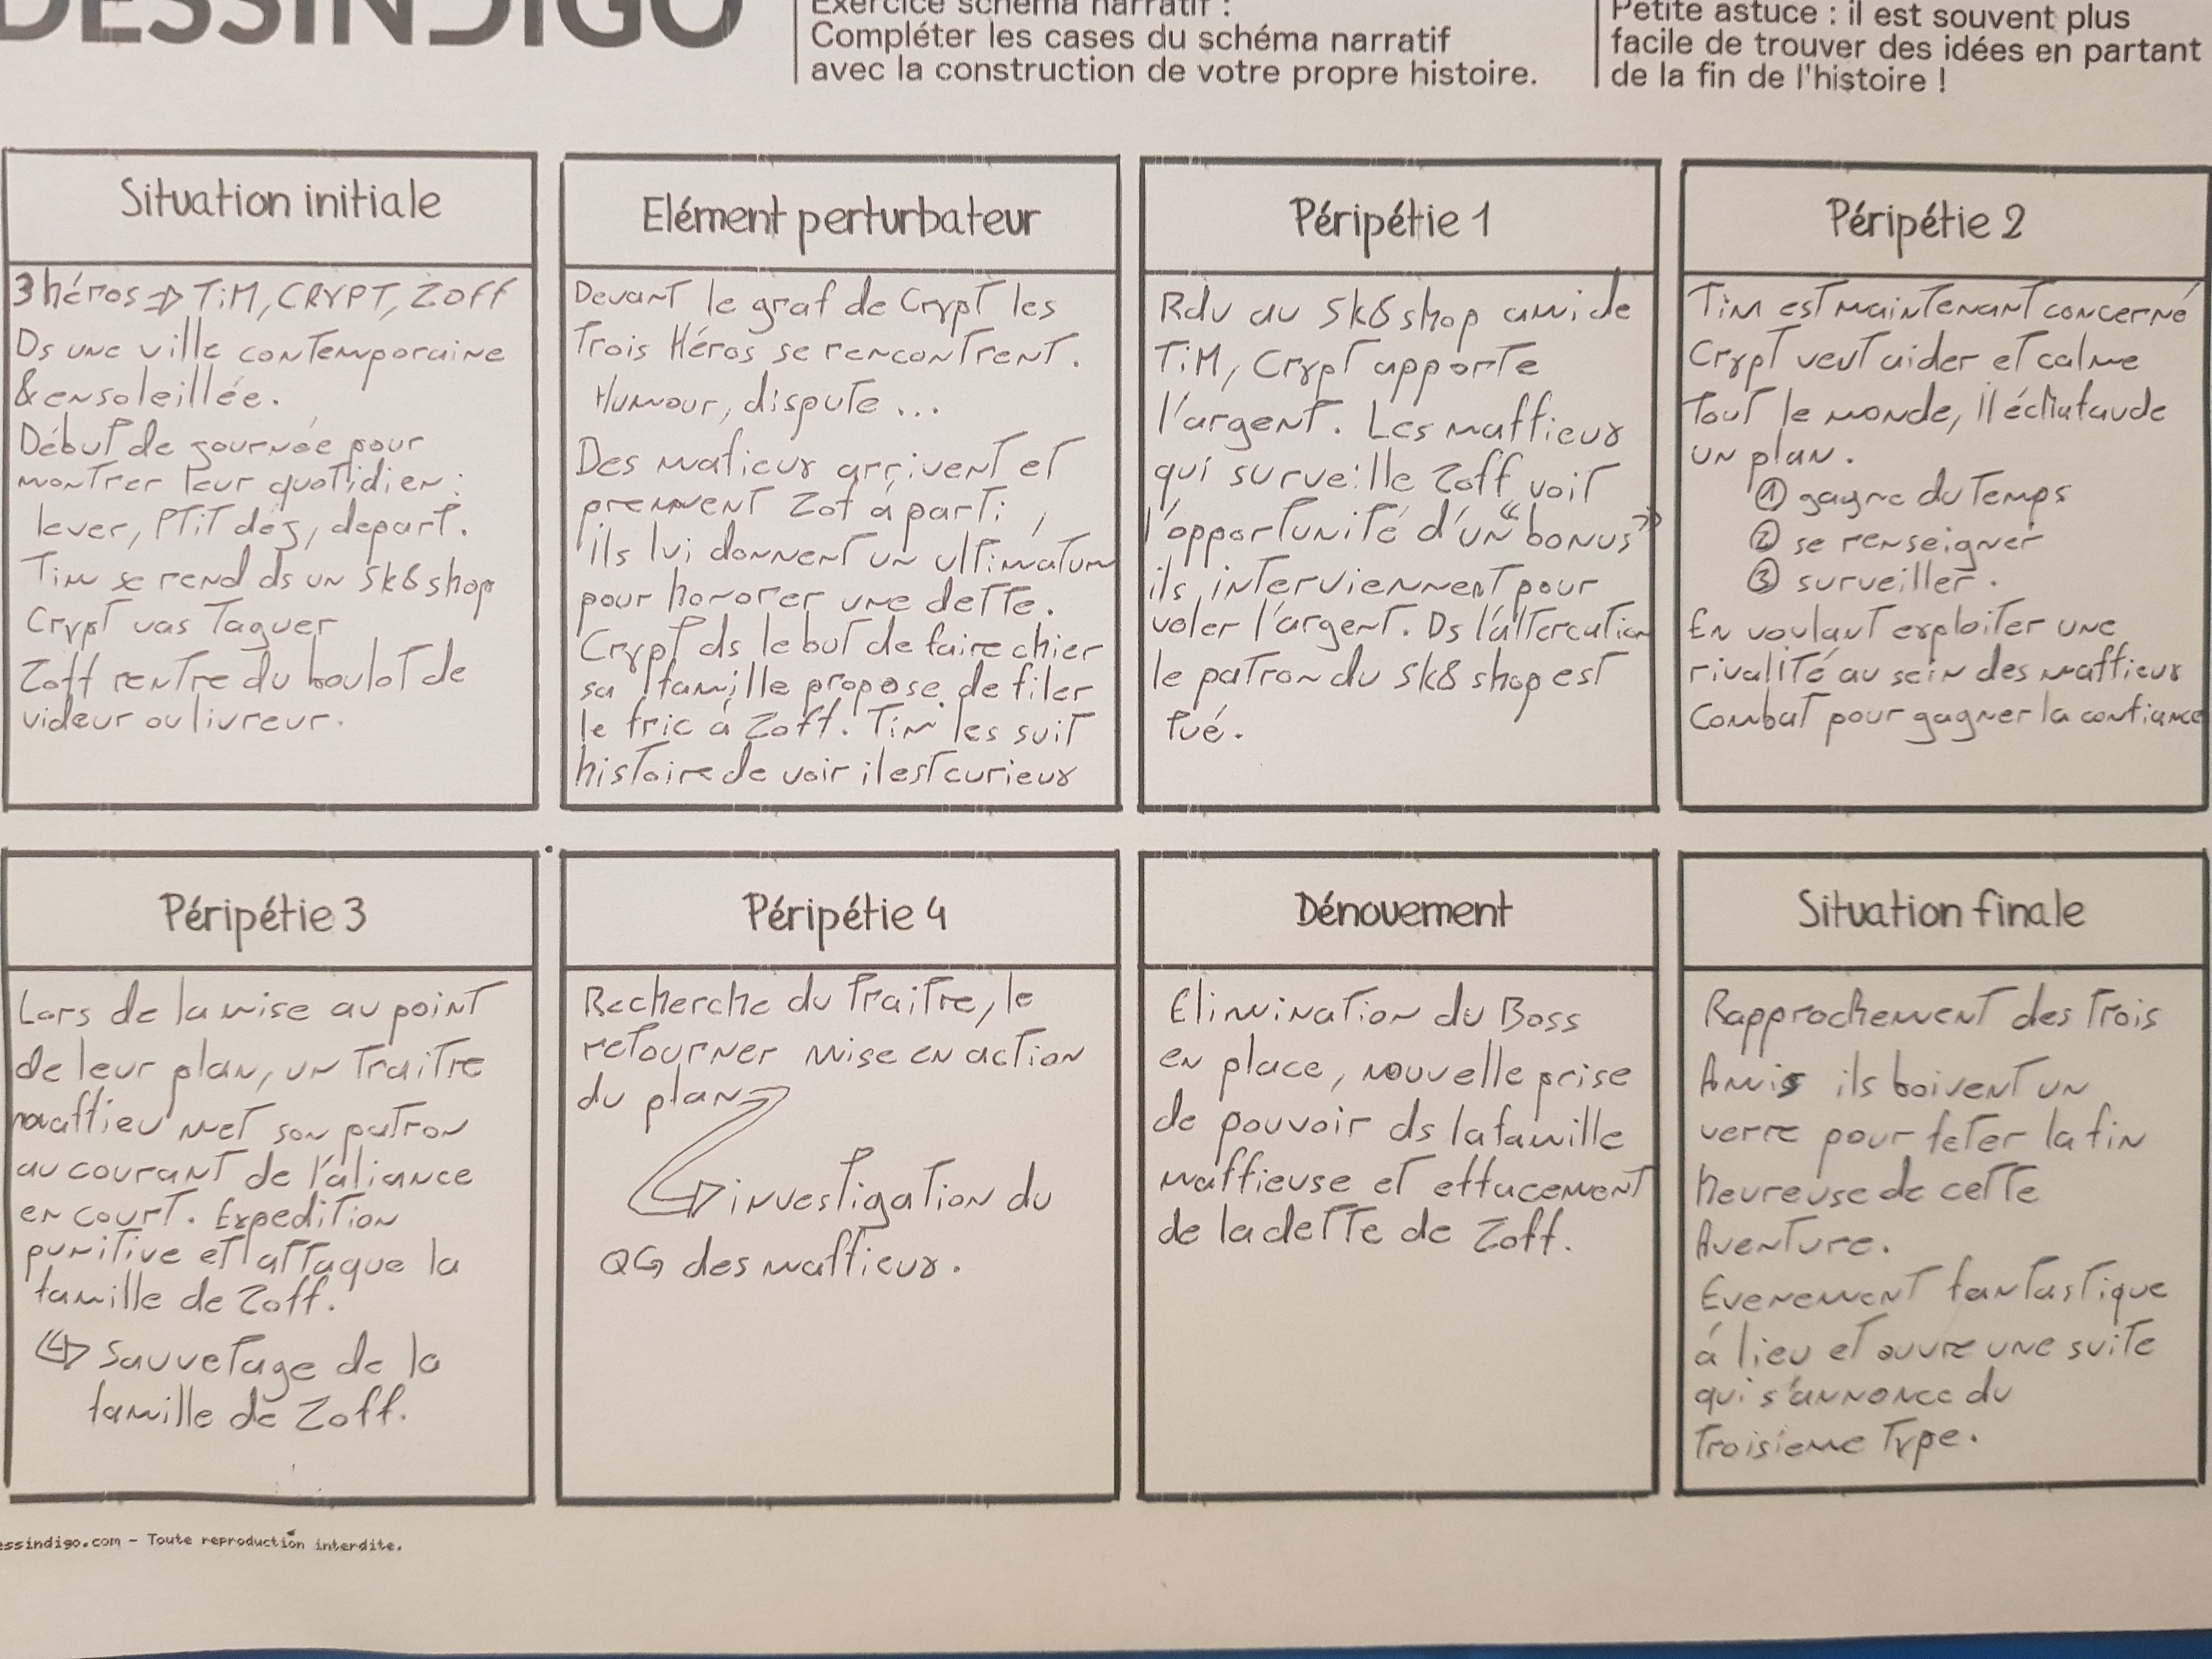 DESSINDIGO
Exercice schéma narratif :
Compléter les cases du schéma narratif
avec la construction de votre propre histoire.
Petite astuce : il est souvent plus
facile de trouver des idées en partant
de la fin de l'histoire !
Situation initiale
3 héros => TiM, CRYPT, ZOFF
Ds une ville contemporaine
& ensoleillée.
Début de journée pour
montrer leur quotidien :
lever, PTiT dej, depart.
Tim se rend ds un sk8 shop
Crypt vas Taguer
Zoff rentre du boulot de
videur ou livreur.
Elément perturbateur
Devant le graf de Crypt les
Trois Héros se rencontrent.
Humour, dispute ...
Des mafieux arrivent et
prennent Zof à parti,
ils lui donnent un ultimatum
pour honorer une dette.
Crypt ds le but de faire chier
sa famille propose de filer
le fric à Zoff. Tim les suit
histoire de voir il est curieux
Péripétie 1
Rdv au Sk8 shop ami de
TiM, Crypt apporte
l'argent. Les maffieux
qui surveille Zoff voit
l'opportunité d'un "bonus"
ils interviennent pour
voler l'argent. Ds l'altercation
le patron du sk8 shop est
Tué.
Péripétie 2
Tim est maintenant concerné
Crypt veut aider et calme
Tout le monde, il échafaude
un plan.
① gagne du Temps
② se renseigner
③ surveiller.
En voulant exploiter une
rivalité au sein des maffieux
Combat pour gagner la confiance
Péripétie 3
Lors de la mise au point
de leur plan, un Traitre
maffieu met son patron
au courant de l'aliance
en court. Expedition
punitive et attaque la
famille de Zoff.
↪ Sauvetage de la
famille de Zoff.
Péripétie 4
Recherche du Traitre, le
retourner mise en action
du plan
↪ investigation du
QG des maffieux.
Dénouement
Elimination du Boss
en place, nouvelle prise
de pouvoir ds la famille
maffieuse et effacement
de la dette de Zoff.
Situation finale
Rapprochement des Trois
Amis ils boivent un
verre pour feter la fin
heureuse de cette
Aventure.
Evenement fantastique
à lieu et ouvre une suite
qui s'annonce du
Troisieme Type.
essindigo.com - Toute reproduction interdite.